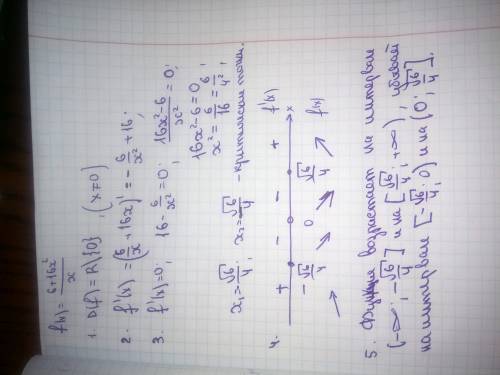 f(x) = (6+16x²)/x
1. D(f) = R\{0} , (x≠0)
2. f'(x) = (6/x + 16x)' = -6/x² + 16.
3. f'(x)=0; 16 - 6/x² = 0; (16x²-6)/x² = 0;
16x²-6=0
x² = 6/16 = 6/4²;
x₁ = √6/4; x₂ = -√6/4 - критические точки.
4. + - - + f'(x)
-√6/4 0 √6/4 x
f(x)
5. Функция возрастает на интервале
(-∞; -√6/4] и на [√6/4; +∞), убывает
на интервале [-√6/4; 0) и на (0; √6/4].